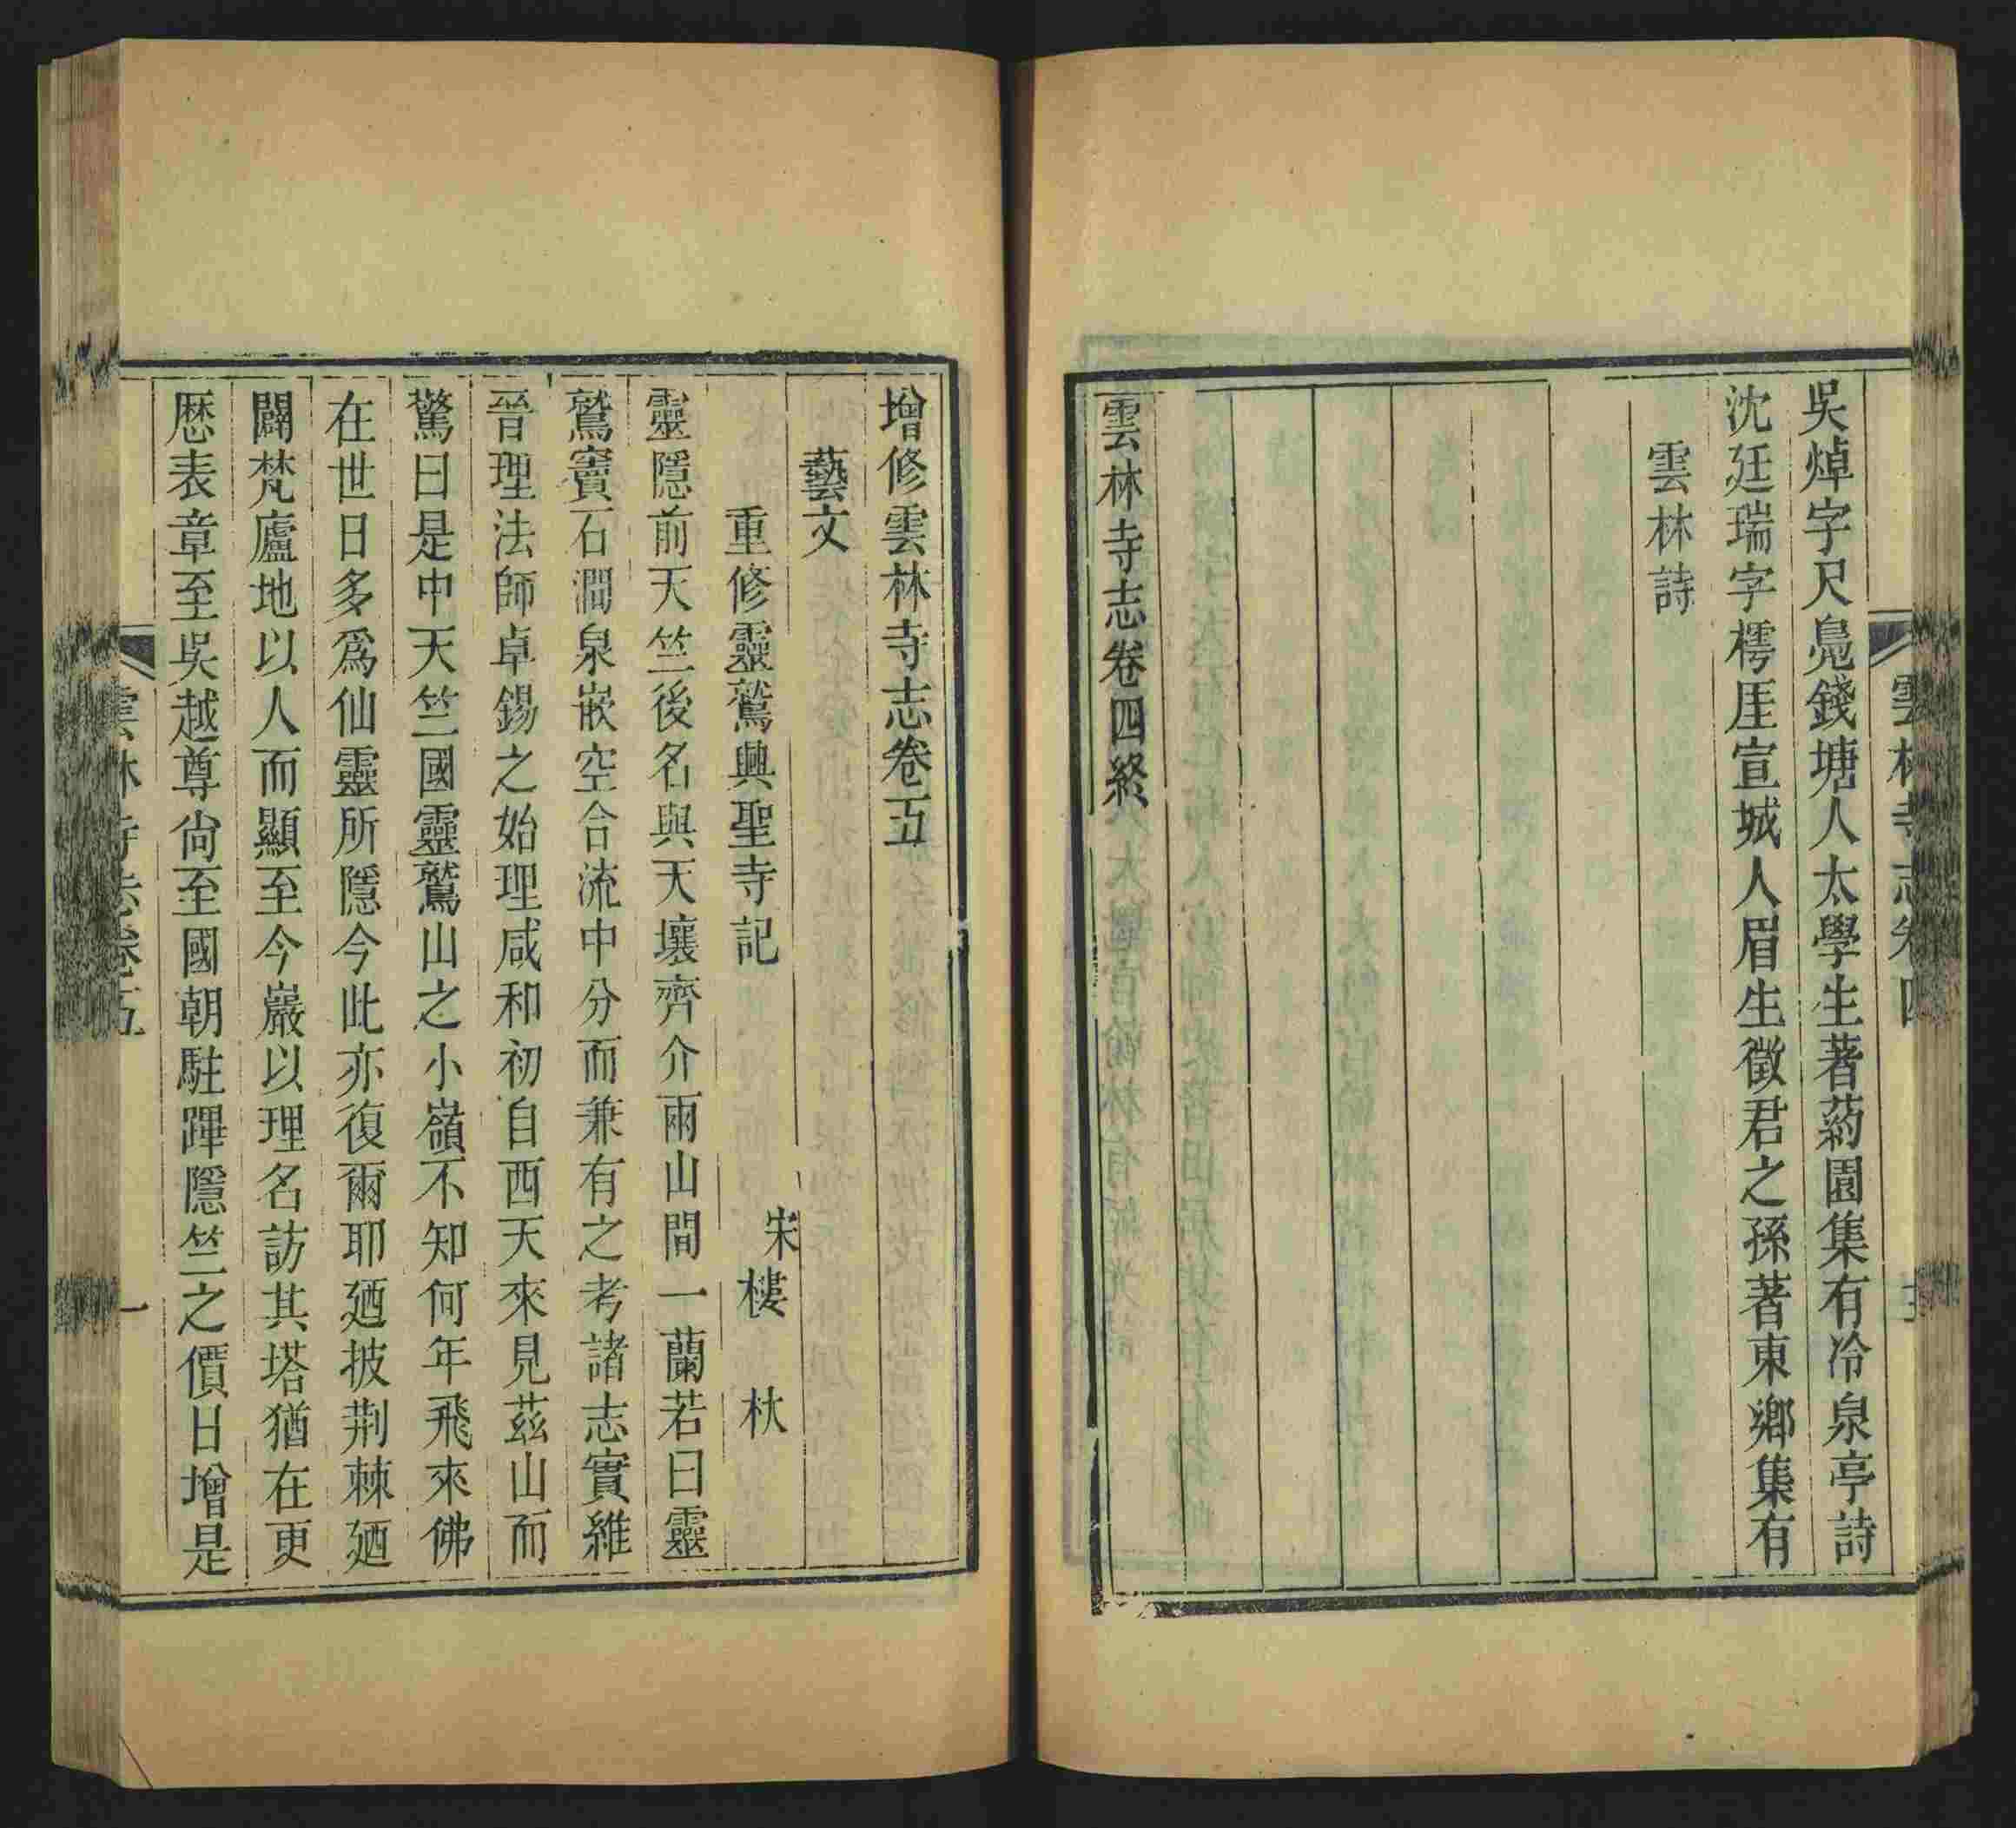 吳焯字尺鳧錢塘人太學生著葯園集有冷泉亭詩
沈廷瑞字樗厓宣城人眉生徵君之孫著東鄉集有
雲林詩
雲林寺志卷四終
增修雲林寺志卷五
藝文
重修靈鷲興聖寺記
宋樓杕
靈隱前天竺後名與天壤齊介兩山間一蘭若曰靈
鷲竇石澗泉嵌空合流中分而兼有之考諸志實維
晉理法師卓錫之始理咸和初自西天來見茲山而
驚曰是中天竺國靈鷲山之小嶺不知何年飛來佛
在世日多爲仙靈所隱今此亦復爾耶廼披荆棘廼
闢梵廬地以人而顯至今巖以理名訪其塔猶在更
歷表章至吳越尊尙至國朝駐蹕隱竺之價日增是
雲林寺志卷五
一